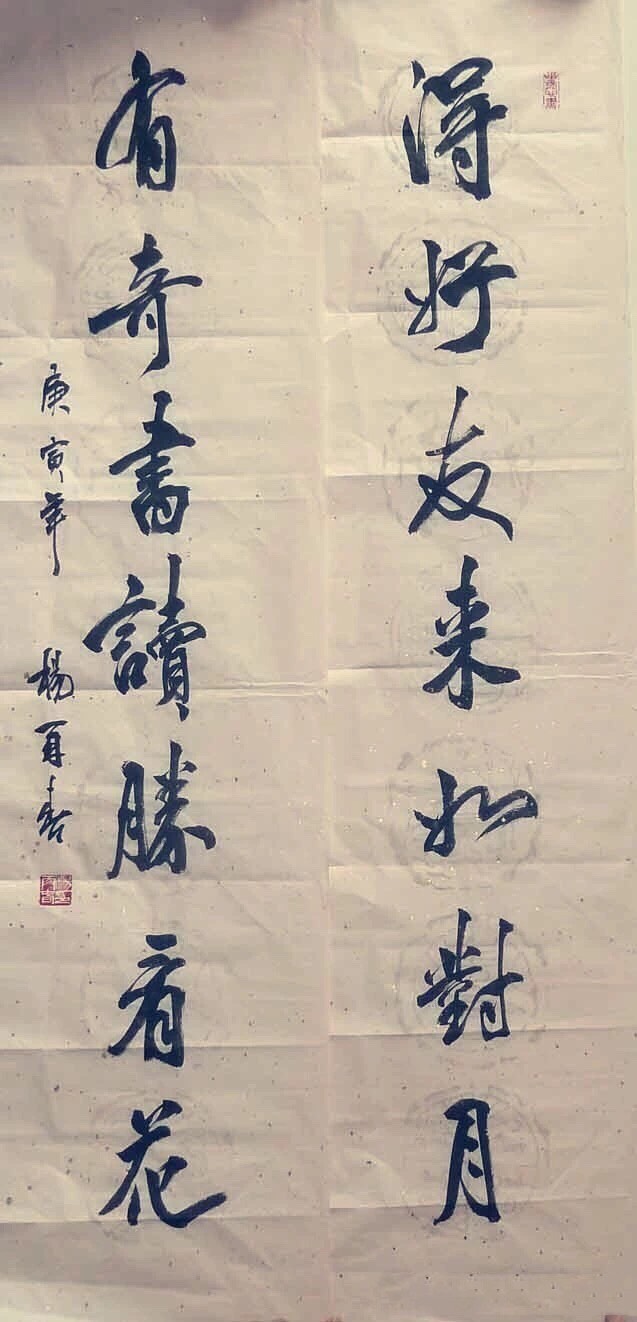 得好友来如對月
有奇書讀勝看花
庚寅年 楊